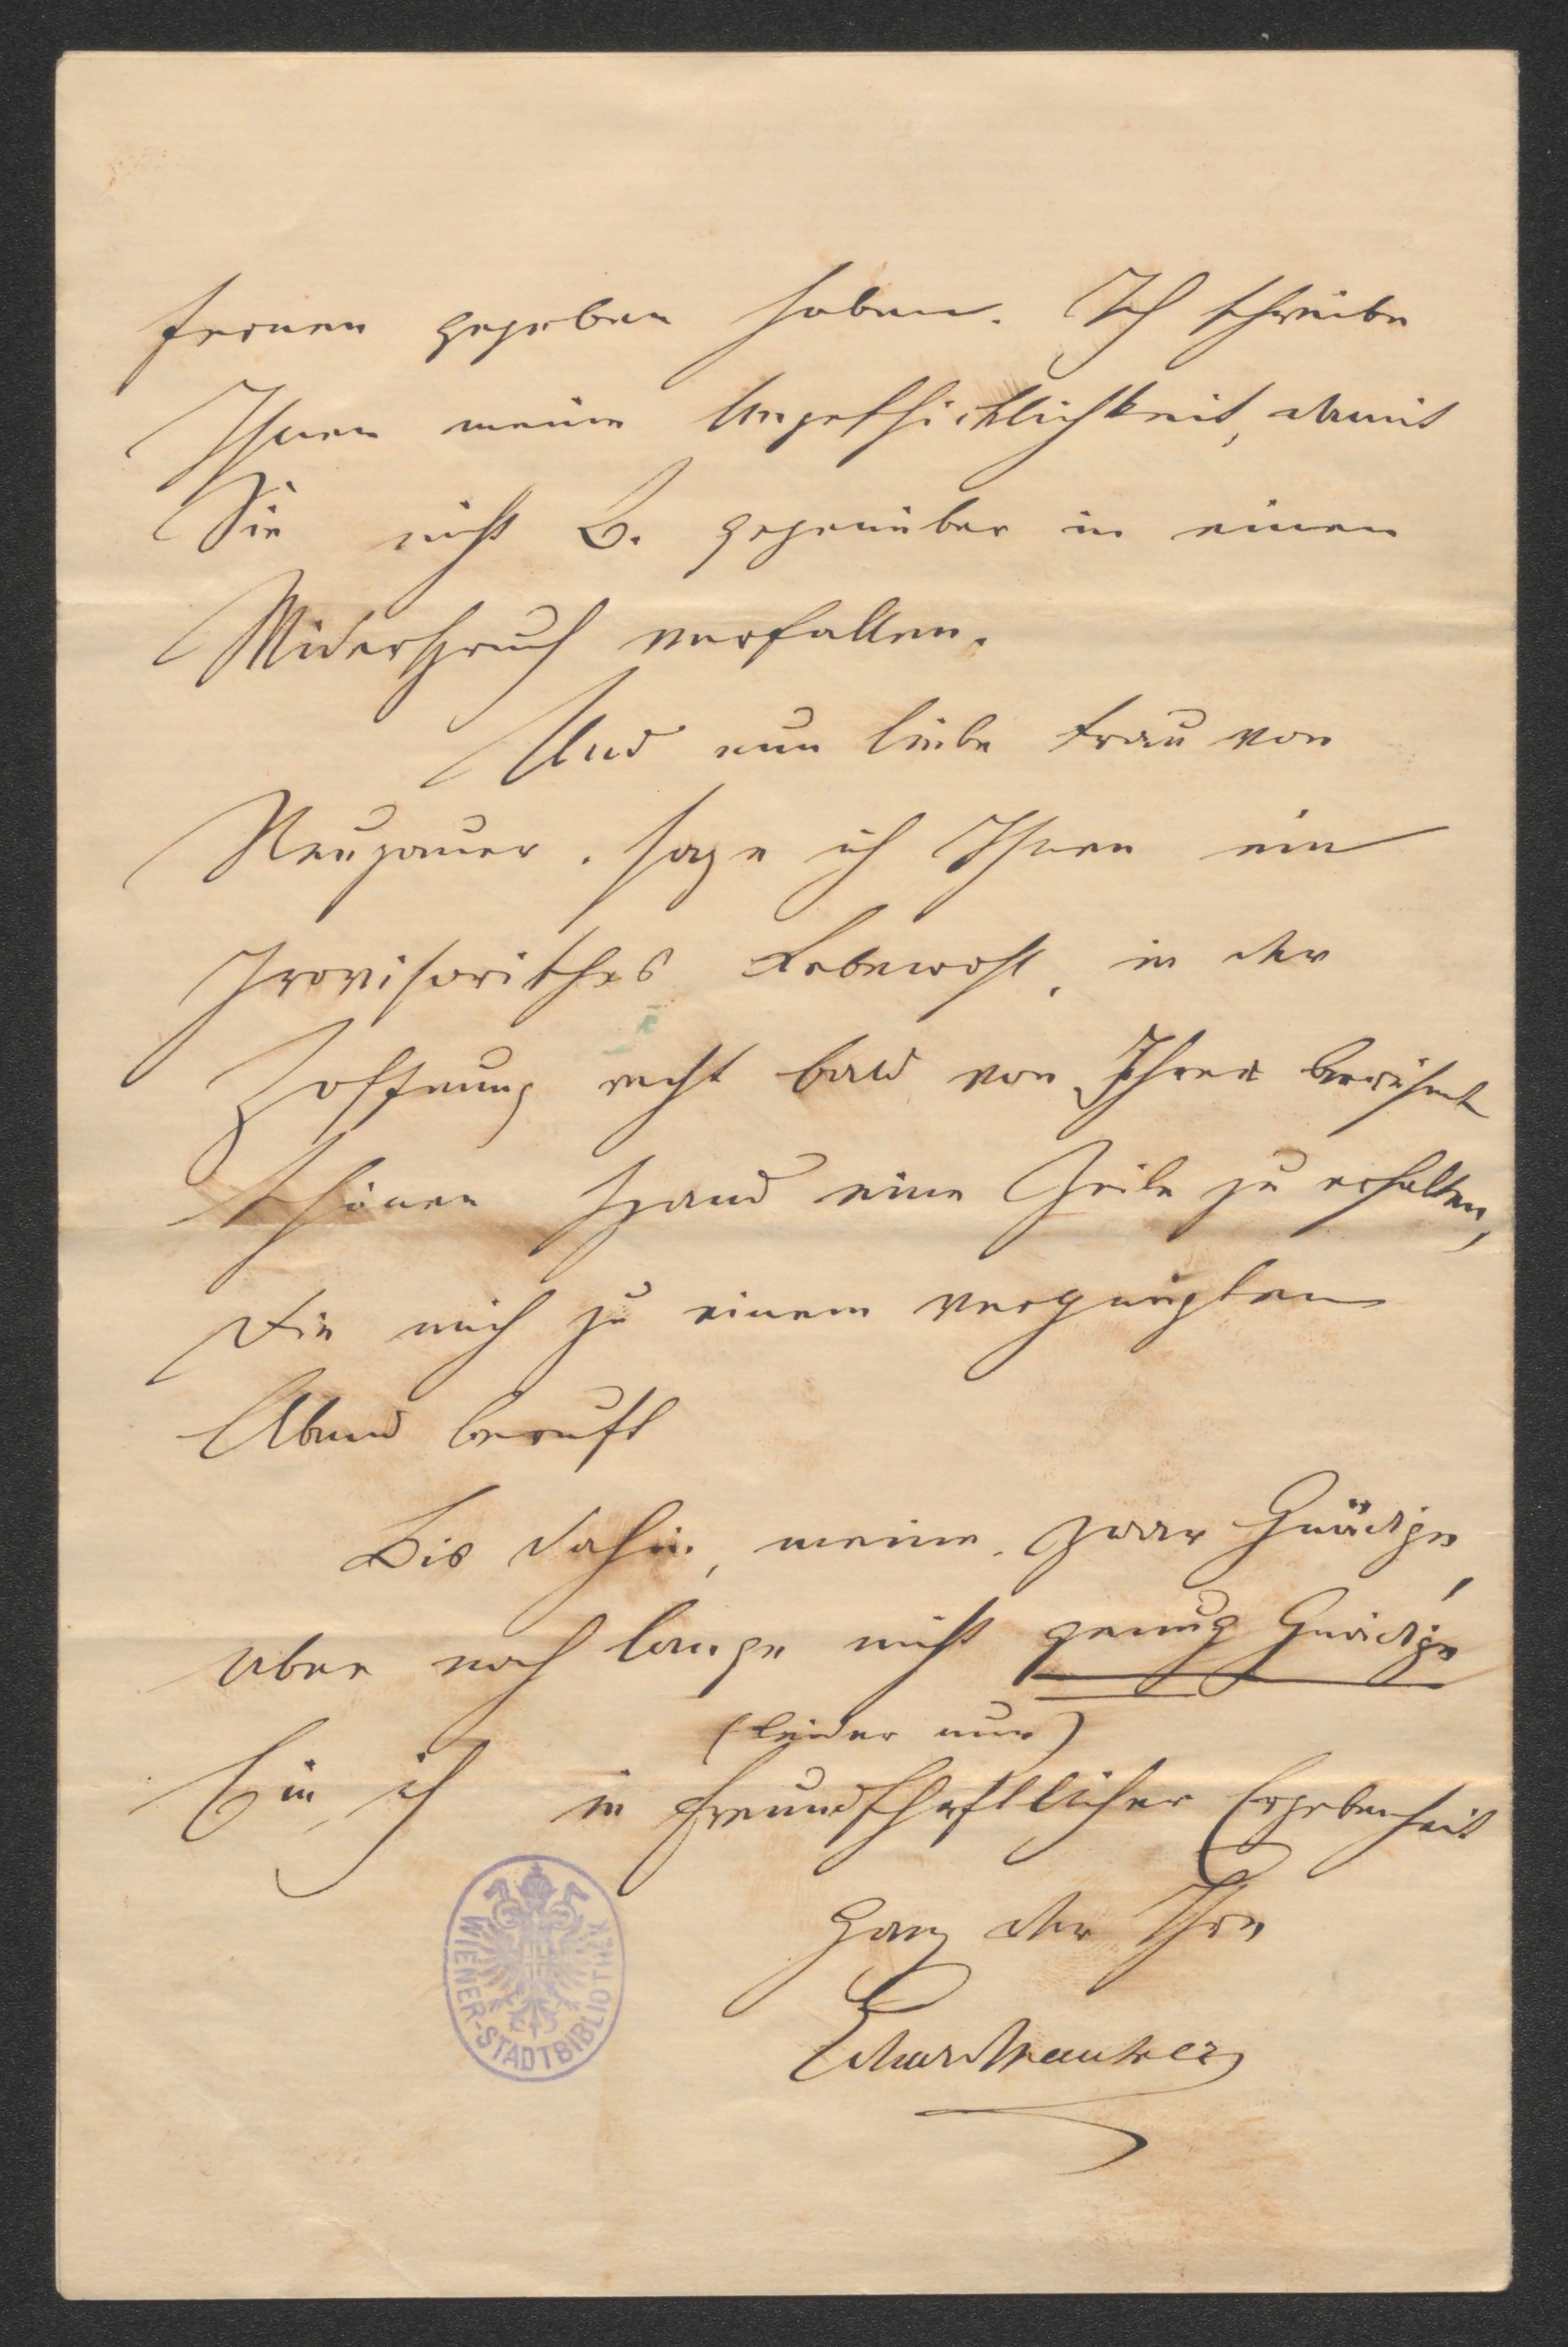 fernen gegeben haben. Ich schreibe
Ihnen meine Ungeschicklichkeit, damit
Sie nicht B. gegenüber in einen
Widerspruch verfallen.
Und nun liebe Frau von
sage ich Ihnen ein
provisorisches Lebewohl, in der
Hoffnung recht bald von Ihrer berühmt
schönen Hand eine Zeile zu erhalten,
die mich zu einem vergnügten
Abend beruft
Bis dahin, meine zwar Gnädige,
aber noch lange nicht genug Gnädige
(leider nur)
bin ich in freundschaftlicher Ergebenheit
Ganz der Ihre
WIENER-STADTBIBLIOTHEK